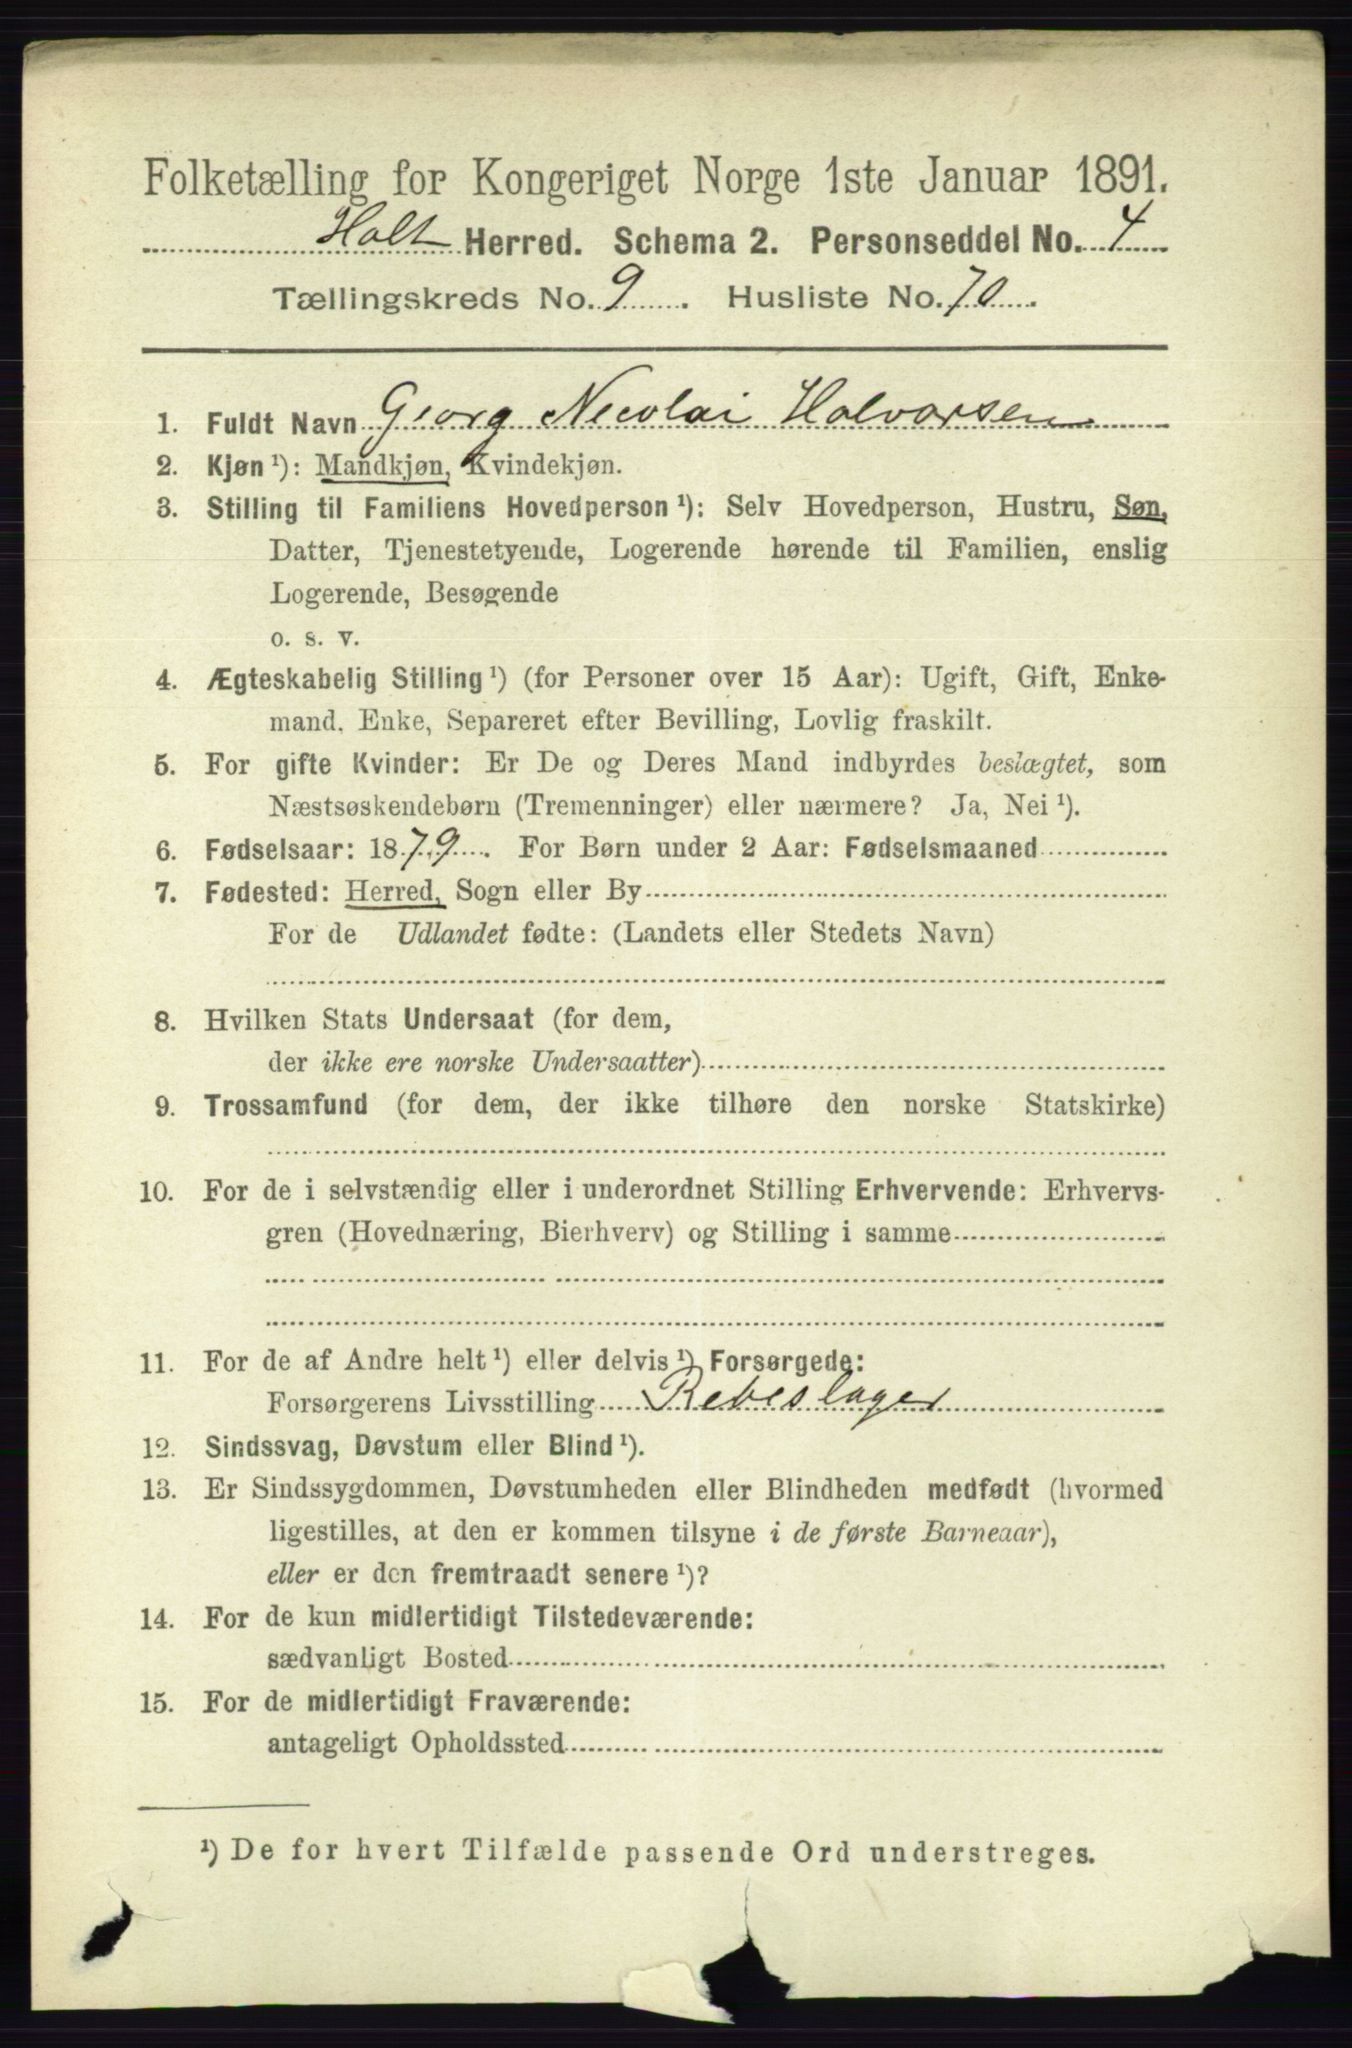 Folketælling for Kongeriget Norge 1ste Januar 1891.
Holt Herred. Schema 2. Personseddel No. 4
Tællingskreds No. 9. Husliste No. 70.
1. Fuldt Navn Georg Necolai Halvorsen
2. Kjøn ¹): Mandkjøn, Kvindekjøn.
3. Stilling til Familiens Hovedperson ¹): Selv Hovedperson, Hustru, Søn,
Datter, Tjenestetyende, Logerende hørende til Familien, enslig
Logerende, Besøgende
o. s. v.
4. Ægteskabelig Stilling ¹) (for Personer over 15 Aar): Ugift, Gift, Enke-
mand, Enke, Separeret efter Bevilling, Lovlig fraskilt.
5. For gifte Kvinder: Er De og Deres Mand indbyrdes beslægtet, som
Næstsøskendebørn (Tremenninger) eller nærmere? Ja, Nei ¹).
6. Fødselsaar: 1879. For Børn under 2 Aar: Fødselsmaaned
7. Fødested: Herred, Sogn eller By
For de Udlandet fødte: (Landets eller Stedets Navn)
8. Hvilken Stats Undersaat (for dem,
der ikke ere norske Undersaatter)
9. Trossamfund (for dem, der ikke tilhøre den norske Statskirke)
10. For de i selvstændig eller i underordnet Stilling Erhvervende: Erhvervs-
gren (Hovednæring, Bierhverv) og Stilling i samme
11. For de af Andre helt ¹) eller delvis ¹) Forsørgede:
Forsørgerens Livsstilling Rebeslager
12. Sindssvag, Døvstum eller Blind ¹).
13. Er Sindssygdommen, Døvstumheden eller Blindheden medfødt (hvormed
ligestilles, at den er kommen tilsyne i de første Barneaar),
eller er den fremtraadt senere ¹)?
14. For de kun midlertidigt Tilstedeværende:
sædvanligt Bosted
15. For de midlertidigt Fraværende:
antageligt Opholdssted
¹) De for hvert Tilfælde passende Ord understreges.